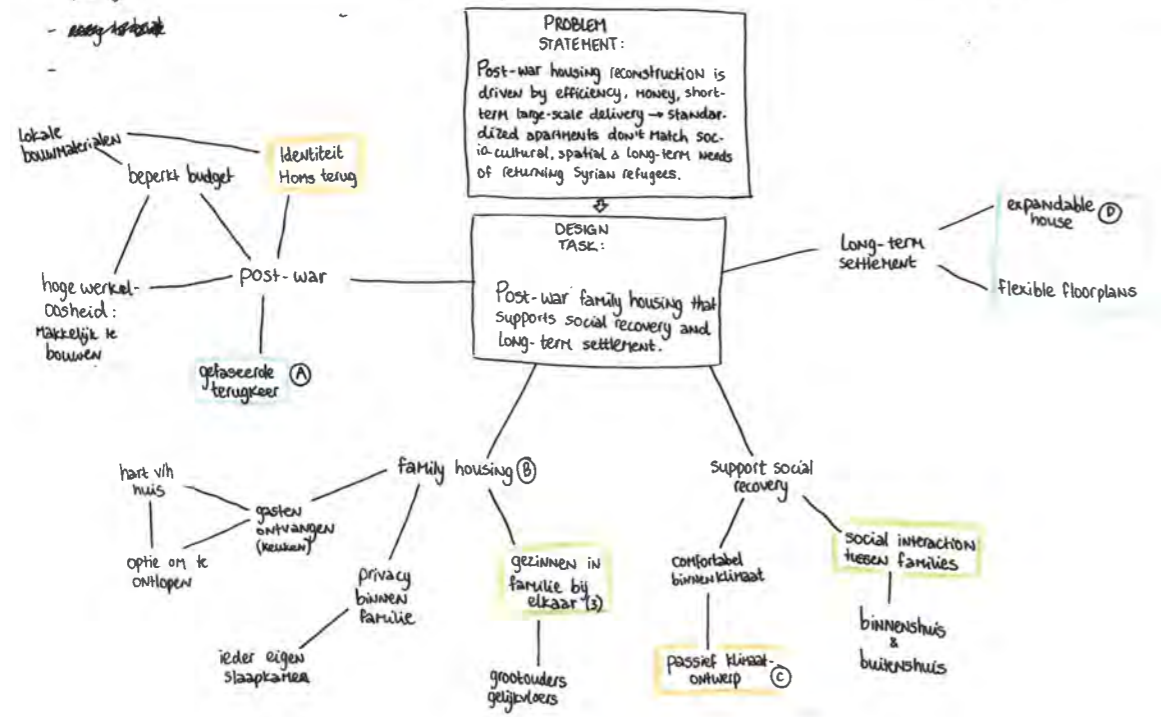 PROBLEM
STATEMENT:
Post-war housing reconstruction is
driven by efficiency, money, short-
term large-scale delivery → standar-
dized apartments don't match soc-
io-cultural, spatial & long-term needs
of returning Syrian refugees.
DESIGN
TASK:
Post-war family housing that
supports social recovery and
long-term settlement.
lokale
bouwmaterialen
beperkt budget
Identiteit
Homs terug
hoge werkel-
oosheid:
makkelijk te
bouwen
post-war
gefaseerde A
terugkeer
Long-term
settlement
expandable D
house
flexible floorplans
family housing B
hart v/h
huis
gasten
ontvangen
(keuken)
optie om te
ontlopen
privacy
binnen
familie
ieder eigen
slaapkamer
gezinnen in
familie bij
elkaar (3)
grootouders
gelijkvloers
support social
recovery
comfortabel
binnenklimaat
passief klimaat-
ontwerp C
social interaction
tussen families
binnenshuis
&
buitenshuis